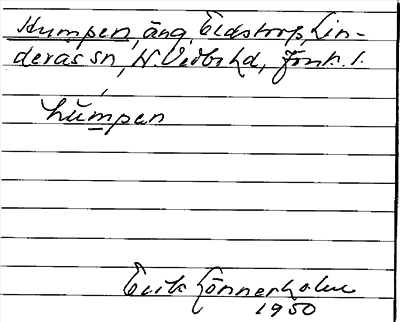 Humpen, äng, Eldstorp, Lin-
deras sn, N. Vedbo hd, Jönk. l.
humpen
Erik Lönnerholm
1950